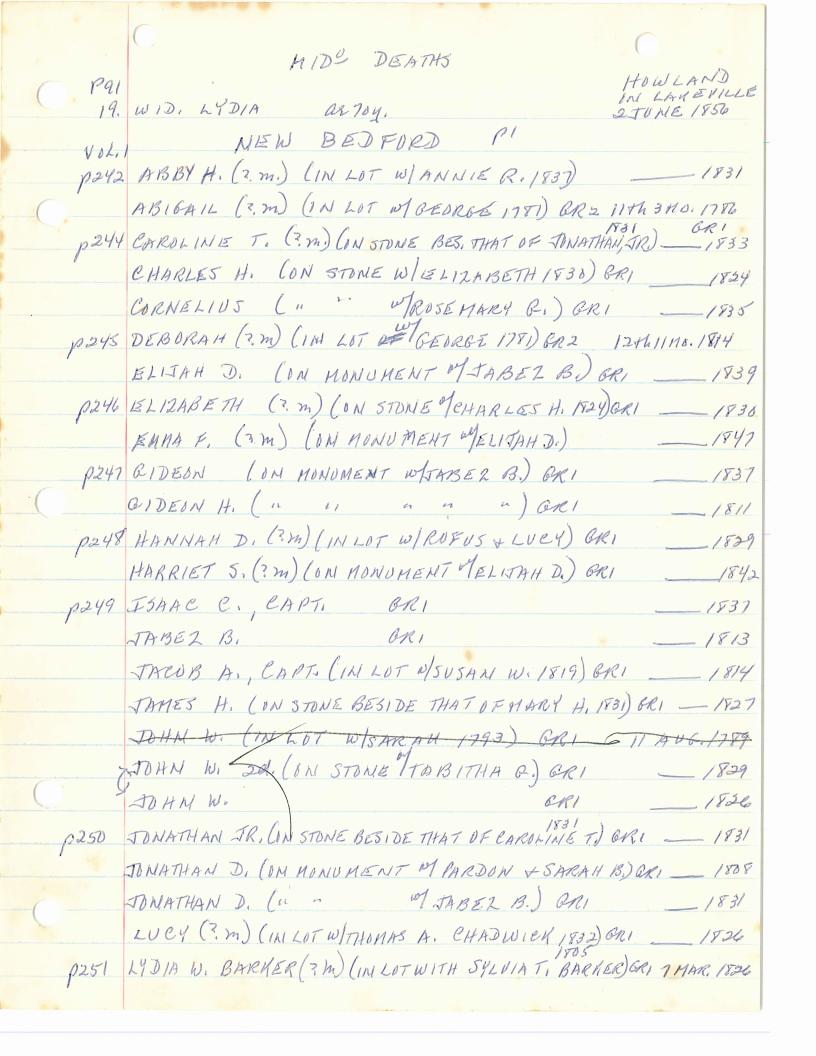 MIDO DEATHS
HOWLAND
P91 IN LAKEVILLE
19. WID. LYDIA ae 70y. 2 JUNE 1856
VOL. 1 NEW BEDFORD P1
p242 ABBY H. (?.m.) (IN LOT W/ANNIE R. 1837) —— 1831
ABIGAIL (?.m) (IN LOT W/GEORGE 1781) GR2 11th 3 MO. 1786
p244 CAROLINE T. (?.m) (ON STONE BES. THAT OF JONATHAN, JR.) 1831 GR1 —— 1833
CHARLES H. (ON STONE W/ELIZABETH 1830) GR1 —— 1824
CORNELIUS ( " " W/ROSEMARY G.) GR1 —— 1835
p245 DEBORAH (?.m) (IN LOT W/GEORGE 1781) GR2 12th 11 MO. 1814
ELIJAH D. (ON MONUMENT W/JABEZ B.) GR1 —— 1839
p246 ELIZABETH (?.m) (ON STONE W/CHARLES H. 1824) GR1 —— 1830
EMMA F. (?.m) (ON MONUMENT W/ELIJAH D.) —— 1847
p247 GIDEON (ON MONUMENT W/JABEZ B.) GR1 —— 1837
GIDEON H. ( " " " " " ) GR1 —— 1811
p248 HANNAH D. (?.m) (IN LOT W/RUFUS & LUCY) GR1 —— 1829
HARRIET S. (?.m) (ON MONUMENT W/ELIJAH D.) GR1 —— 1842
p249 ISAAC C., CAPT. GR1 —— 1837
JABEZ B. GR1 —— 1813
JACOB A., CAPT. (IN LOT W/SUSAN W. 1819) GR1 —— 1814
JAMES H. (ON STONE BESIDE THAT OF MARY H. 1831) GR1 —— 1827
JOHN W. (IN LOT W/SARAH 1793) GR1 11 AUG. 1789
JOHN W. 2d. (ON STONE W/TABITHA G.) GR1 —— 1829
JOHN W. GR1 —— 1826
p250 JONATHAN JR. (ON STONE BESIDE THAT OF CAROLINE T.) 1831 GR1 —— 1831
JONATHAN D. (ON MONUMENT W/ PARDON & SARAH B.) GR1 —— 1808
JONATHAN D. ( " " W/ JABEZ B.) GR1 —— 1831
LUCY (?.m) (IN LOT W/THOMAS A. CHADWICK 1832) GR1 —— 1826
p251 LYDIA W. BARKER (?.m) (IN LOT WITH SYLVIA T. BARKER) 1805 GR1 7 MAR. 1826